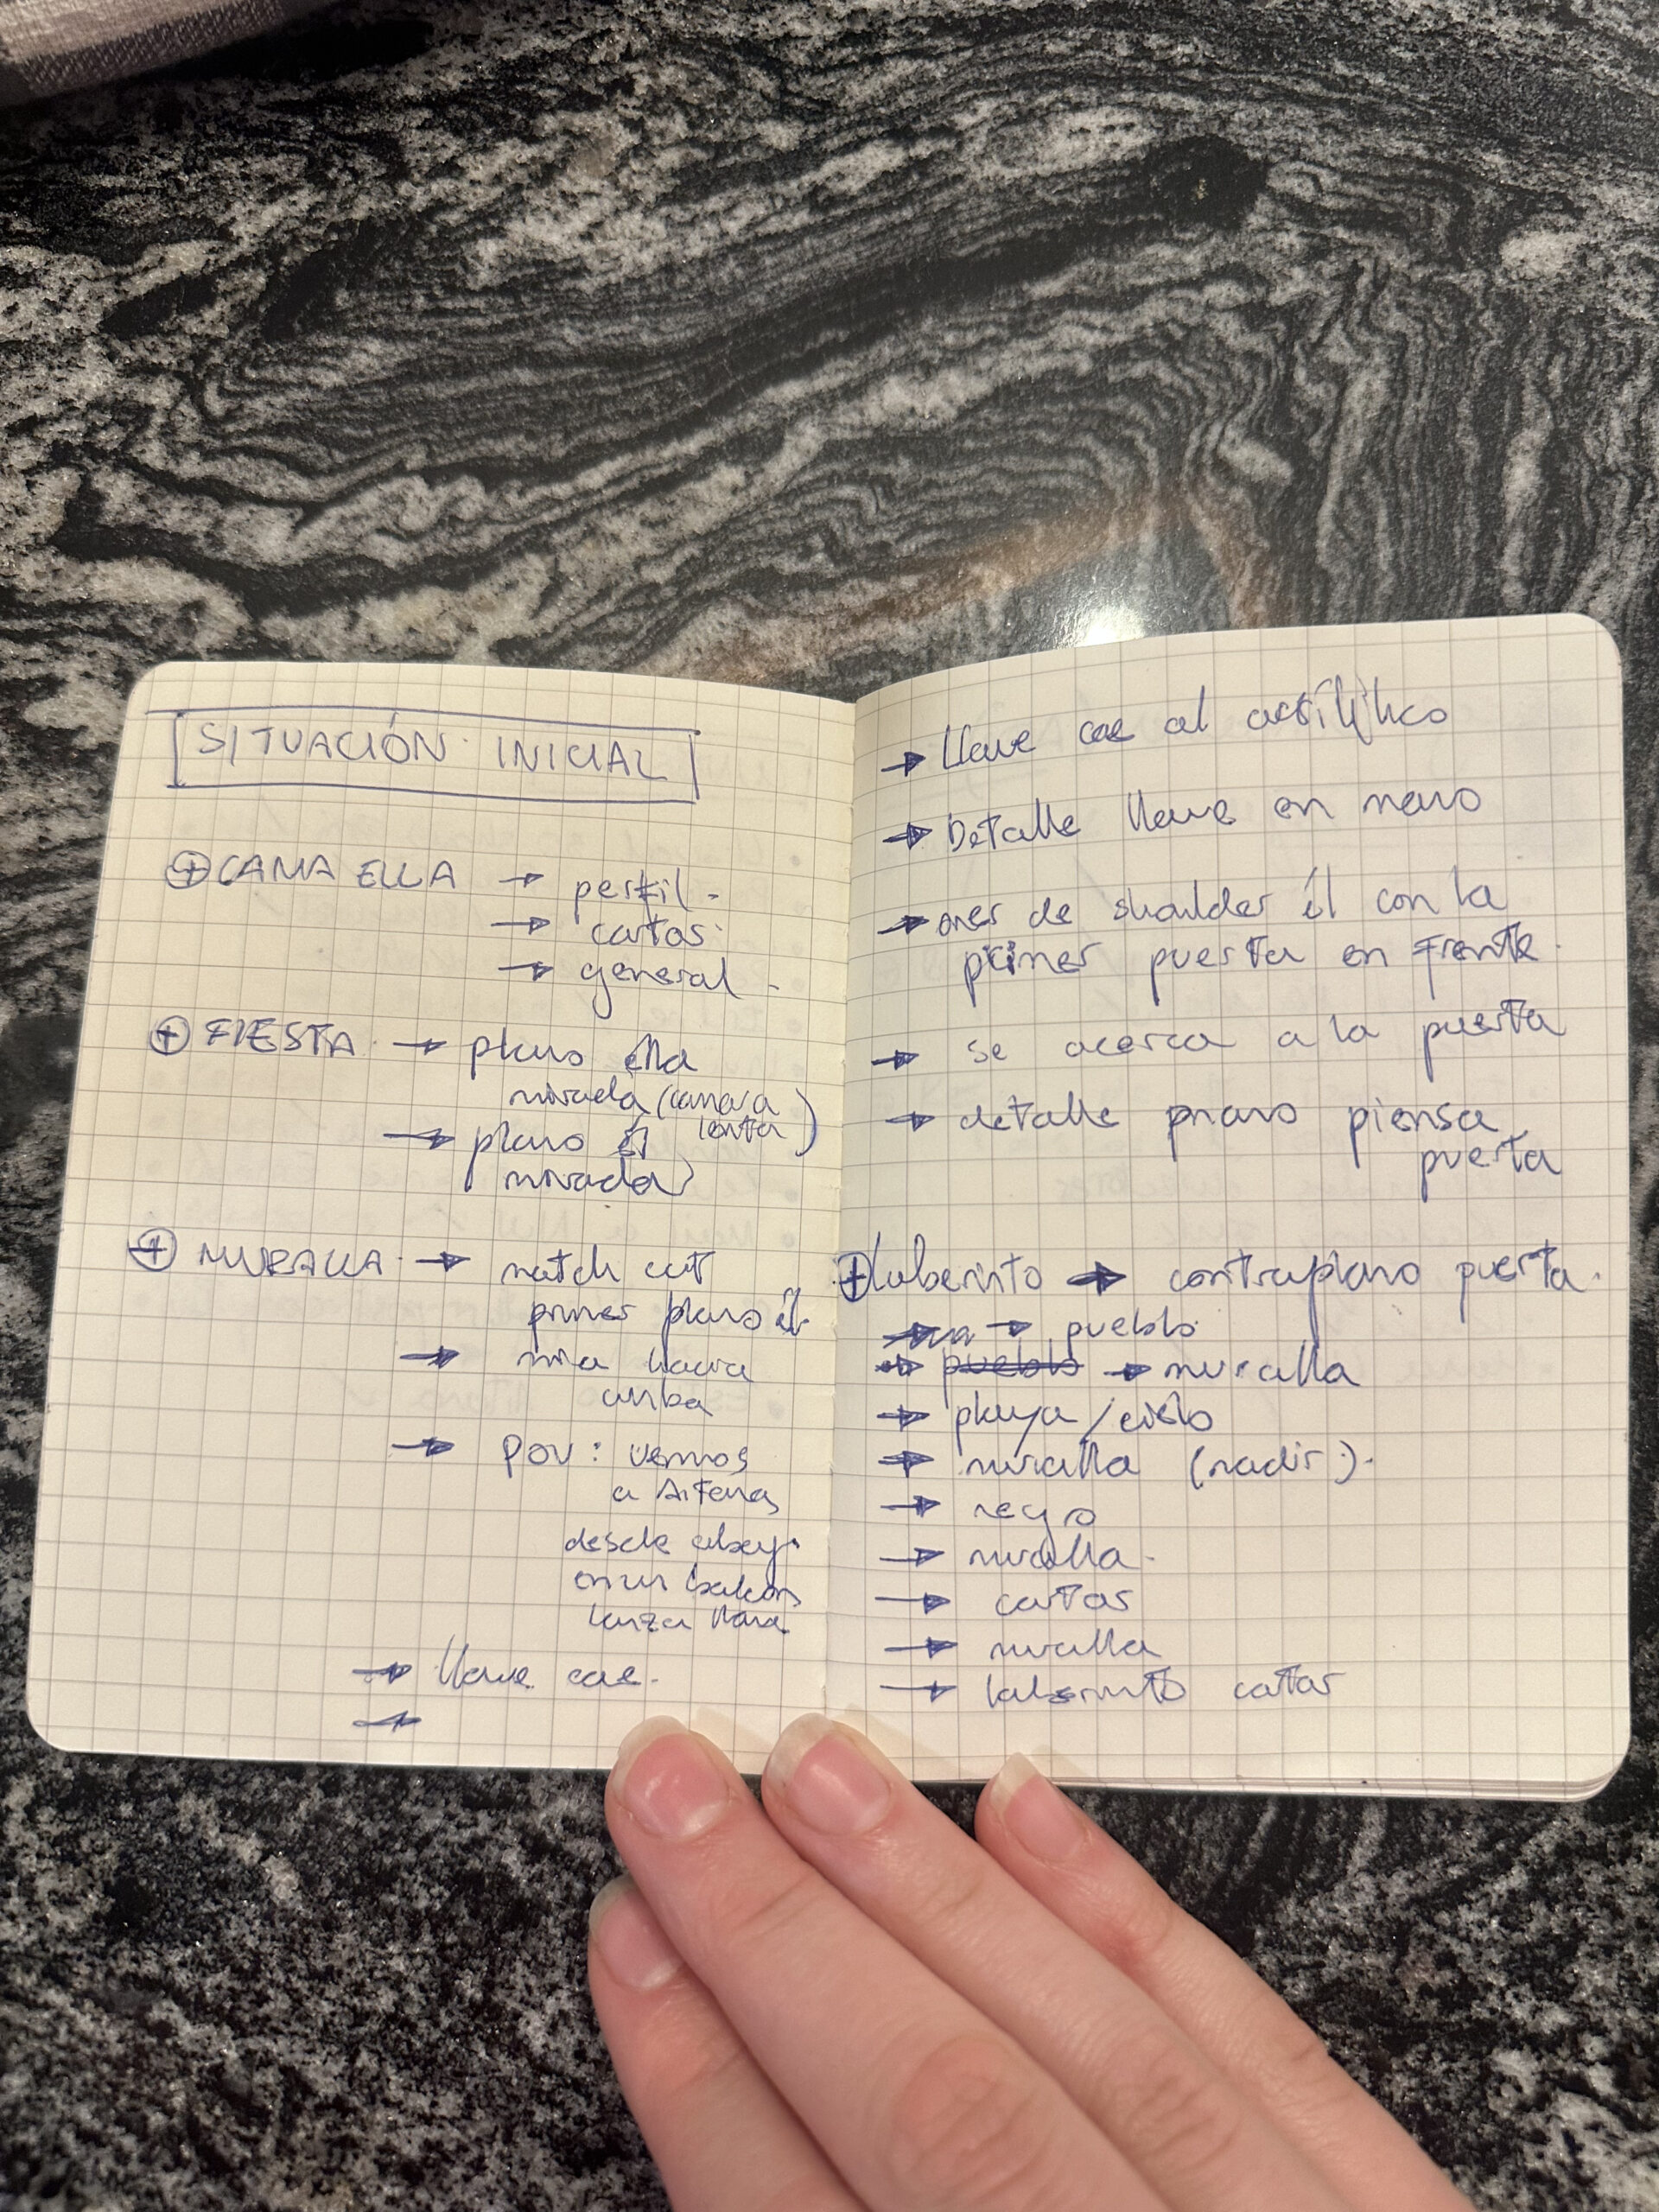 SITUACIÓN INICIAL
CAMA ELLA → perfil.
→ cartas
→ general.
FIESTA → plano ella
mirada (camara
lenta)
→ plano él
mirada
MURALLA → match cut
primer plano él.
→ mira hacia
arriba
→ POV: vemos
a
desde abajo
en un balcón
lanza llave
→ llave cae.
→
→ Llave cae al
→ Detalle llave en mano
→ over de shoulder él con la
primer puerta en frente.
→ se acerca a la puerta
→ detalle mano piensa
puerta
Laberinto → contraplano puerta.
→ pueblo
→ pueblo → muralla
→ playa / cielo
→ muralla (nadir).
→ negro
→ muralla.
→ cartas
→ muralla
→ laberinto cartas